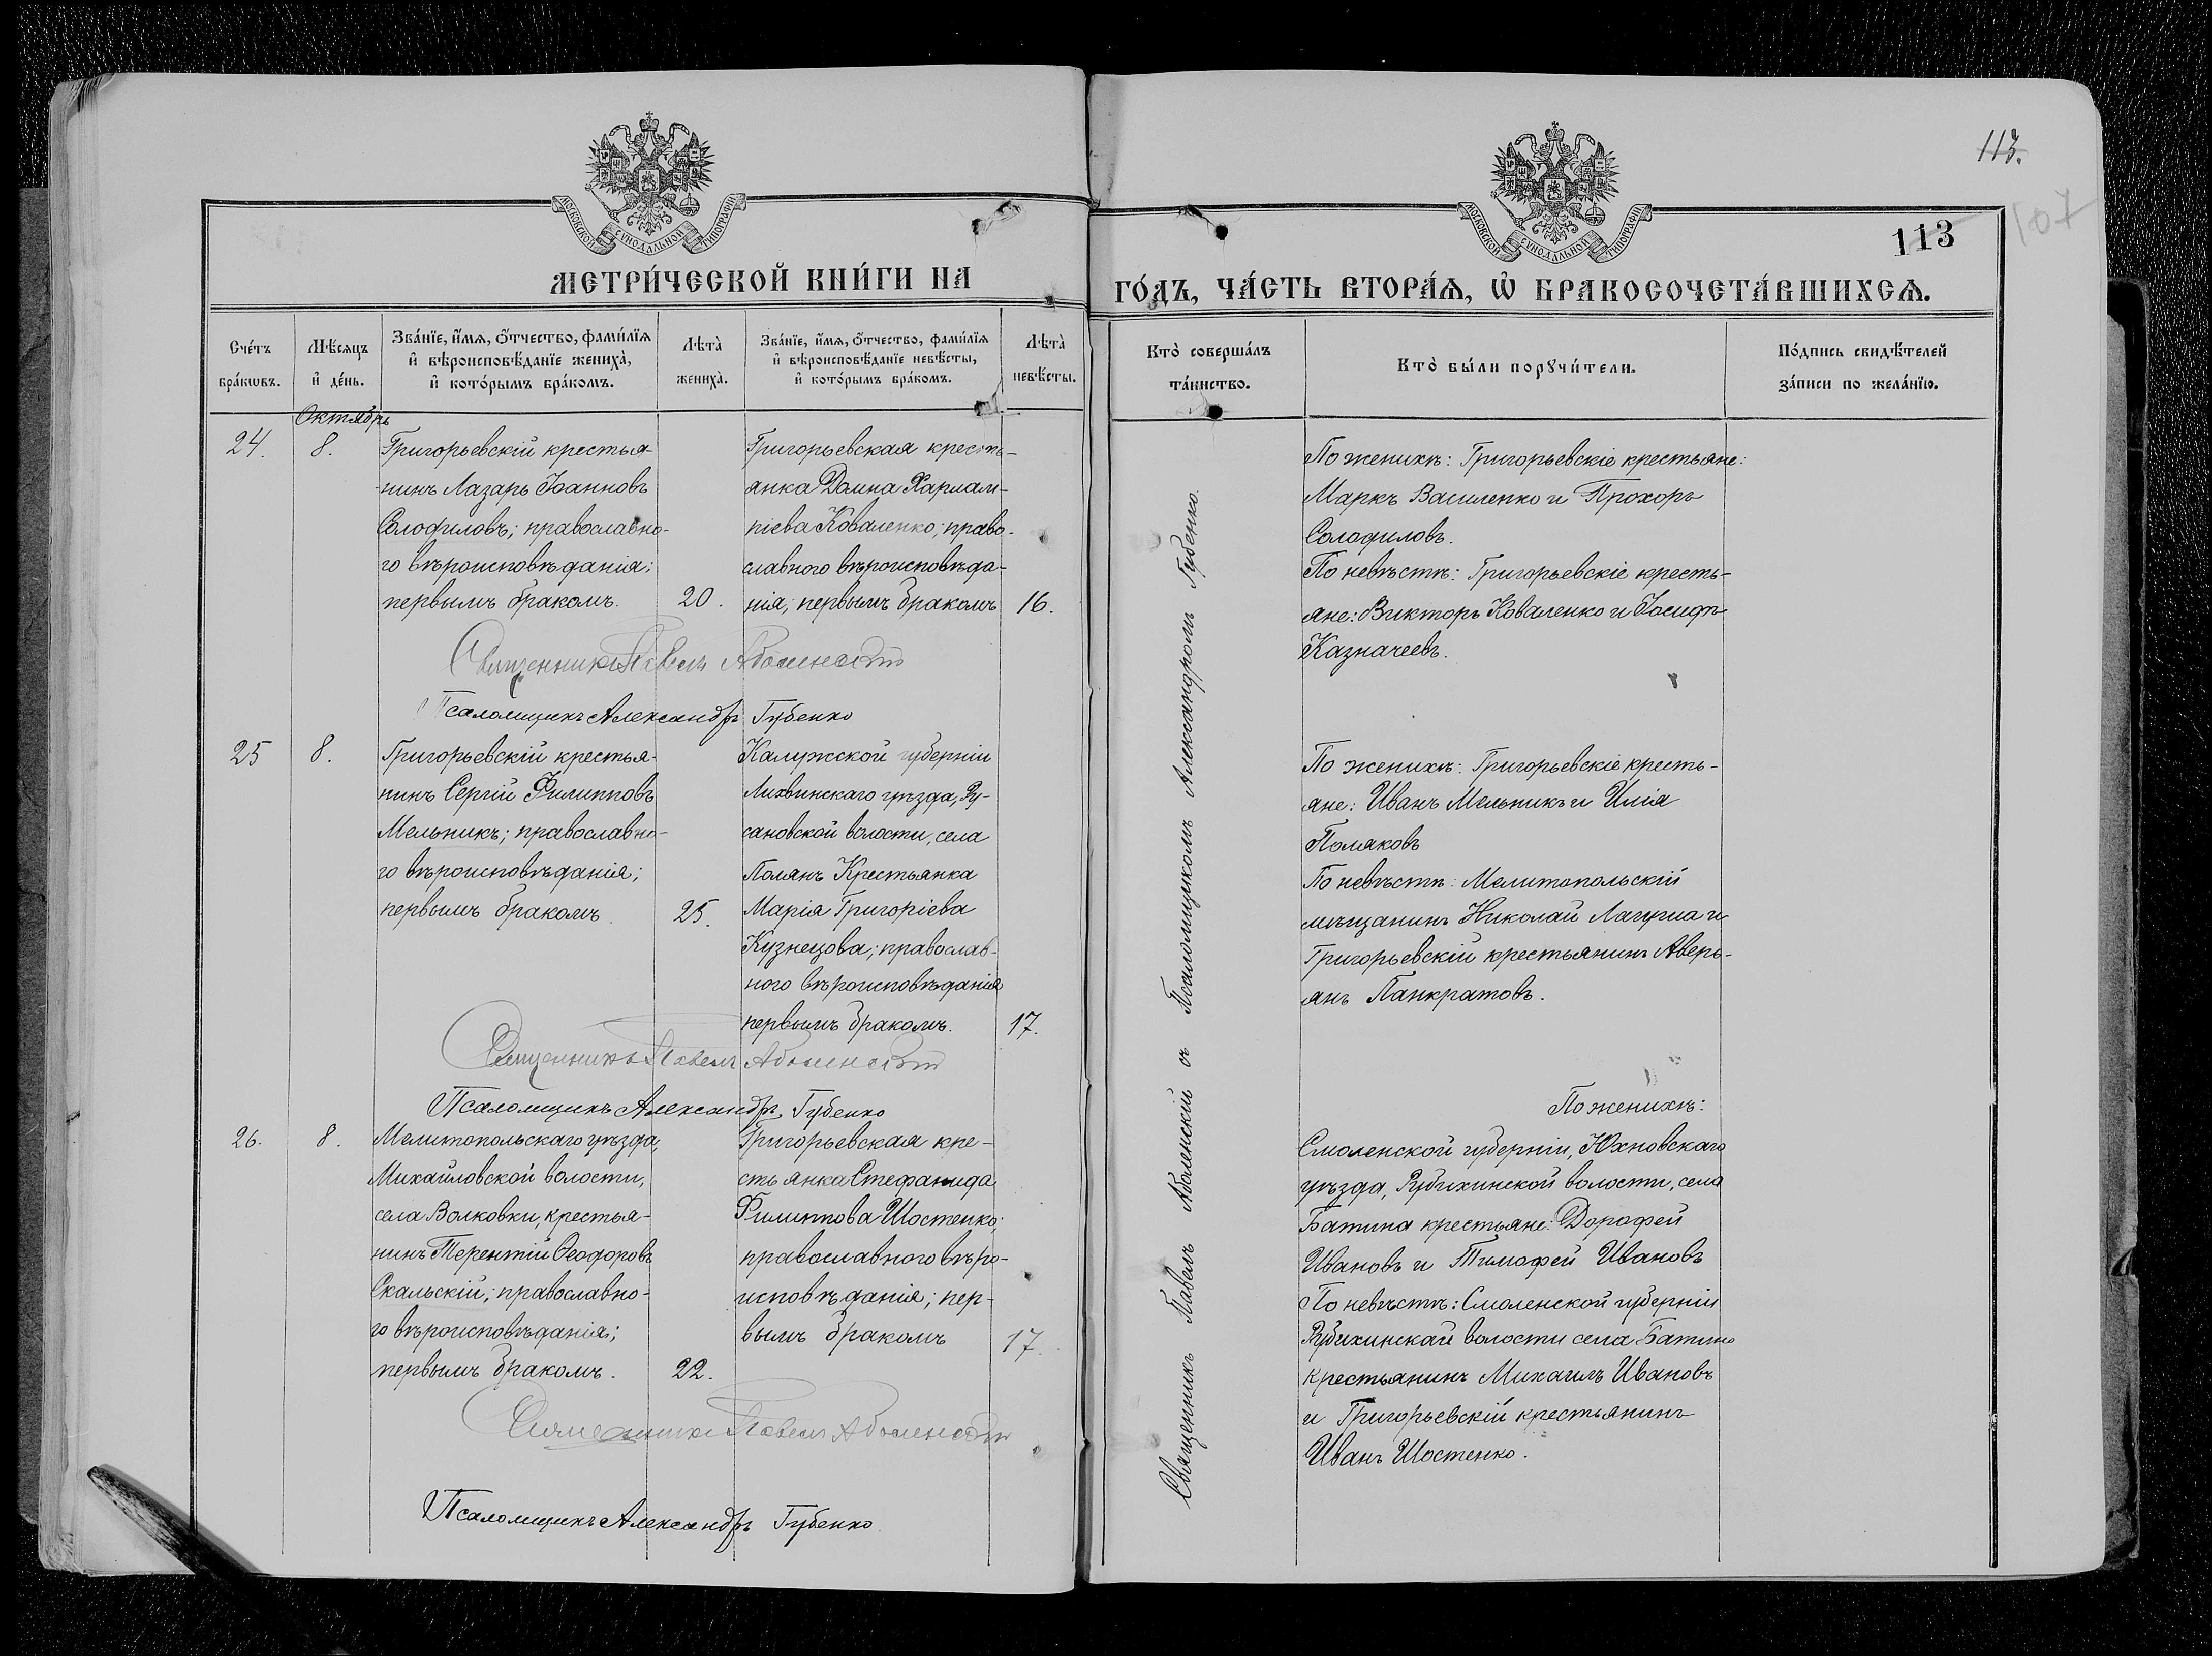 113.
107
113
МОСКОВСКОЙ СѴНОДАЛЬНОЙ ТИПОГРАФІИ
МОСКОВСКОЙ СѴНОДАЛЬНОЙ ТИПОГРАФІИ
МЕТРИ́ЧЕСКОЙ КНИ́ГИ НА
ГО́ДЪ, ЧА́СТЬ ВТОРА́Ѧ, Ѡ҆ БРАКОСОЧЕТА́ВШИХСѦ.
Сче́тъ бра́кѡвъ.
Мѣ́сяцъ и҆ де́нь.
Зва́нїе, и҆́мѧ, ѻ҆́тчество, фами́лїѧ и҆ вѣроисповѣ́данїе жениха̀, и҆ кото́рымъ бра́комъ.
Лѣта̀ жениха̀.
Зва́нїе, и҆́мѧ, ѻ҆́тчество, фами́лїѧ и҆ вѣроисповѣ́данїе невѣ́сты, и҆ кото́рымъ бра́комъ.
Лѣта̀ невѣ́сты.
Кто̀ соверша́лъ та́инство.
Кто̀ бы́ли порꙋчи́тели.
По́дпись свидѣ́телей за́писи по жела́нїю.
Октябрь
24.
8.
Григорьевскій крестья-
нинъ Лазарь Іоанновъ
Солодиловъ; православно-
го вѣроисповѣданія;
первымъ бракомъ.
20.
Григорьевская кресть-
янка Домна Харлам-
піева Коваленко; право-
славного вѣроисповѣда-
нія; первымъ бракомъ
16.
Священникъ Павелъ Аболенскій
Псаломщикъ Александръ Губенко
25
8.
Григорьевскій крестья-
нинъ Сергій Филипповъ
Мельникъ; православно-
го вѣроисповѣданія;
первымъ бракомъ.
25.
Калужской губерніи
Лихвинскаго уѣзда, Ру-
сановской волости, села
Полянъ Крестьянка
Марія Григоріева
Кузнецова; православ-
ного вѣроисповѣданія
первымъ бракомъ.
17.
Священникъ Павелъ Аболенскій
Псаломщикъ Александръ Губенко
26.
8.
Мелитопольскаго уѣзда,
Михайловской волости,
села Волковки, крестья-
нинъ Терентій Ѳеодоровъ
Скальскій; православно-
го вѣроисповѣданія;
первымъ бракомъ.
22.
Григорьевская кре-
стьянка Стефанида
Филиппова Шостенко;
православного вѣро-
исповѣданія; пер-
вымъ бракомъ
17.
Священникъ Павелъ Аболенскій
Псаломщикъ Александръ Губенко
Священникъ Павелъ Аболенскій съ Псаломщикомъ Александромъ Губенко.
По женихѣ: Григорьевскіе крестьяне:
Маркъ Василенко и Прохоръ
Солодиловъ.
По невѣстѣ: Григорьевскіе кресть-
яне: Викторъ Коваленко и Іосифъ
Казначеевъ.
По женихѣ: Григорьевскіе кресть-
яне: Иванъ Мельникъ и Илія
Поляковъ
По невѣстѣ: Мелитопольскій
мѣщанинъ Николай и
Григорьевскій крестьянинъ Аверь-
янъ Панкратовъ.
По женихѣ:
Смоленской губерніи, Юхновскаго
уѣзда, Рубихинской волости, села
Батина крестьяне: Дорофей
Ивановъ и Тимофей Ивановъ
По невѣстѣ: Смоленской губерніи
Рубихинской волости села Батино
крестьянинъ Михаилъ Ивановъ
и Григорьевскій крестьянинъ
Иванъ Шостенко.